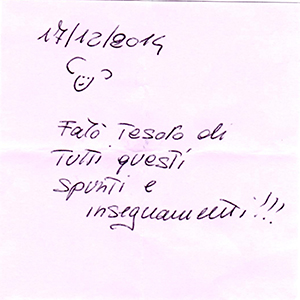 17/12/2014
Farò Tesoro di
Tutti questi
spunti e
insegnamenti!!!